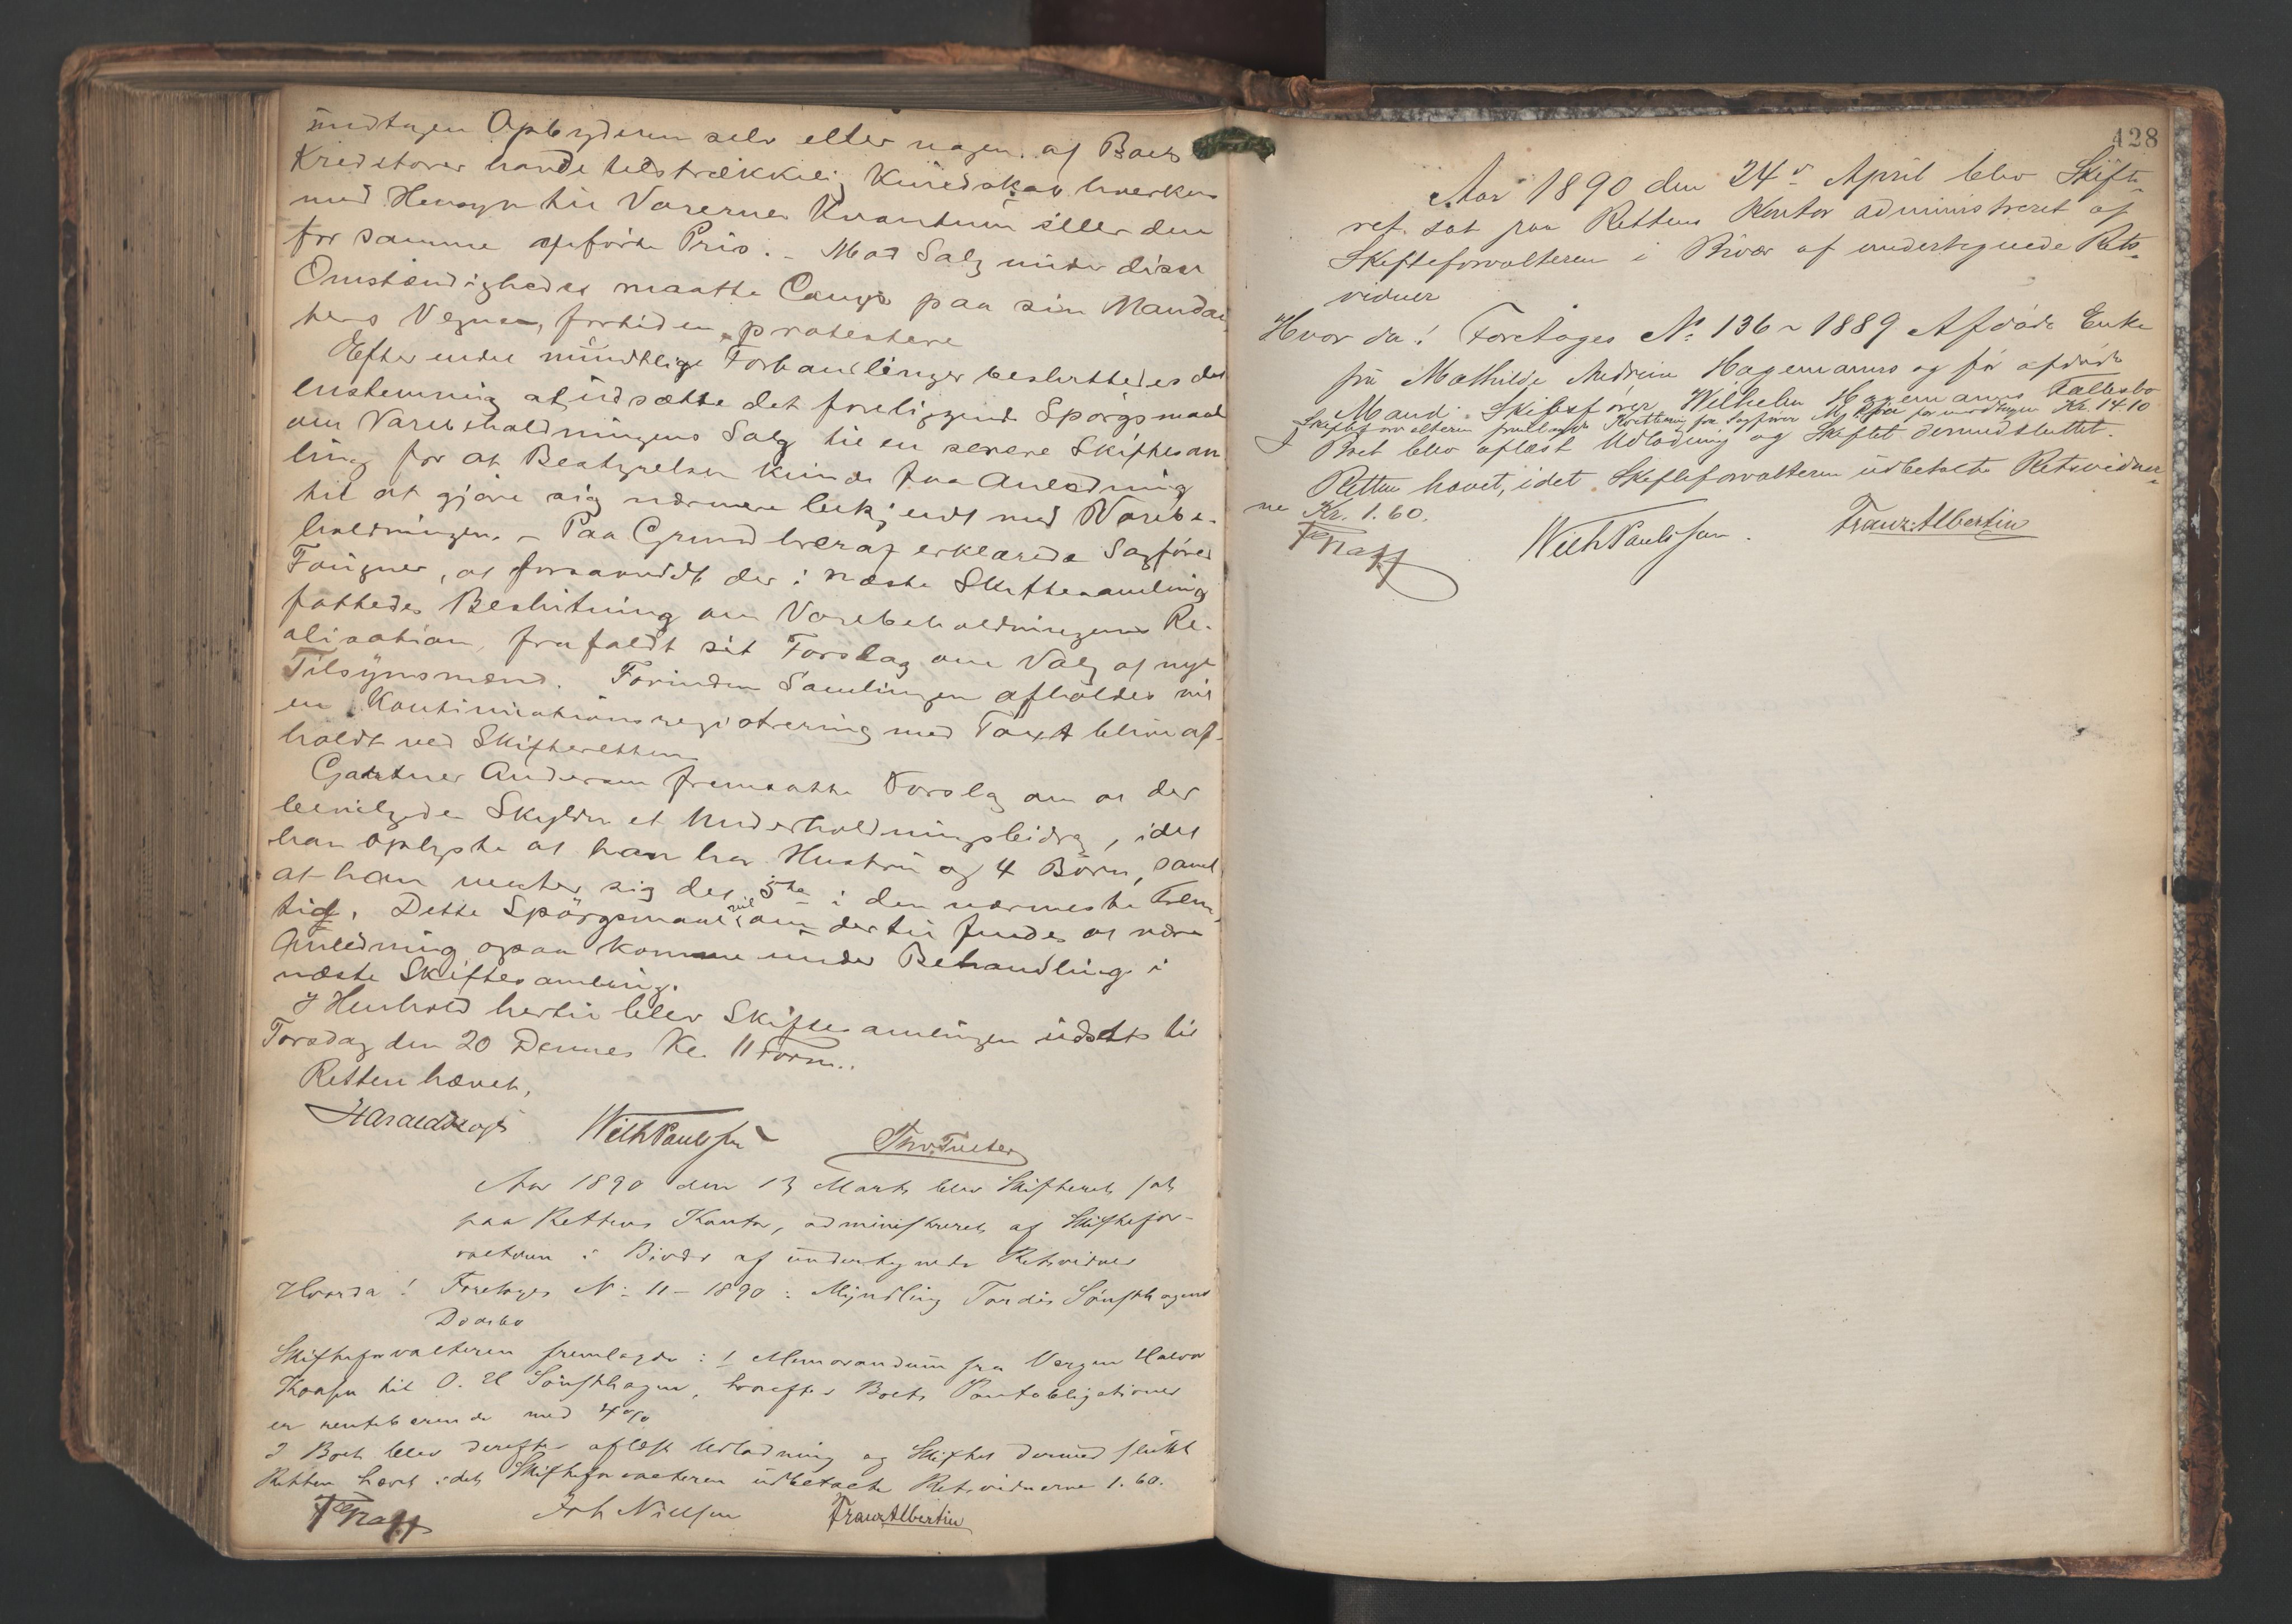 undtagen Opbyderen selv eller nogen af Boets
Kreditorer havde tilstrækkelig Kundskab hverken
med Hensyn til Varernes Kvantum eller den
for samme opførte Pris. - Mod Salg under disse
Omstændigheder maatte Camp paa sin Mandan
hens Vegne, fortiden protestere
Efter endel mündtlige Forhandlinger besluttedes det
enstemmig at udsætte det foreliggende Spørgsmaal
om Varebeholdningens Salg til en senere Skiftesam
ling for at Bestyrelsen kunde faa Anledning
til at gjøre sig nærmere bekjendt med Varebe-
holdningen. - Paa Grund heraf erklærede Sagfører
Fougner, at forsaavidt der i næste Skiftesamling
fattedes Beslutning om Varebeholdningens Re-
alisation, frafaldt sit Forslag om Valg af nye
Tilsynsmænd. Forinden Samlingen afholdes vil
en Kontinuationsregistrering med Taxt blive af-
holdt ved Skifteretten
Gartner Andersen fremsatte Forslag om at der
bevilgedes Skyldn et Underholdningsbidrag, idet
han oplyste at han har Hustru og 4 Børn, samt
at han venter sig det 5te i den nærmeste Frem-
tid. Dette Spørgsmaal vil, om dertil findes at være
Anledning ogsaa komme under Behandling i
næste Skiftesamling.
I Henhold hertil blev Skiftesamlingen udsat til
Torsdag den 20 Dennes Kl. 11 Form..
Retten hævet,
Harald WilhPaulssen Thv.
Aar 1890 den 13 Marts blev Skifteret sat
paa Rettens Kontor, administreret af Skiftefor-
valteren i Bivær af undertegnede Retsvidner
Hvorda! Foretoges No 11 - 1890: Myndling Tordis Sønsthagens
Dødsbo
Skifteforvalteren fremlagde: 1 Memorandum fra Vergen Halvor
til O. H Sønsthagen, hvorefter Boets Pantobligationer
er rentebærende med 4%
I Boet blev derefter aflæst Udlodning og Skiftet dermed sluttet
Retten hævet idet Skifteforvalteren udbetalte Retsvidnerne 1.60.
Joh Nielsen FranzAlbertin
428
Aar 1890 den 24de April blev Skifte-
ret sat paa Rettens Kontor administreret af
Skifteforvalteren i Bivær af undertegnede Rets-
vidner
Hvor da! Foretoges No 136 - 1889 Afdøde Enke
fru Mathilde Hagemanns og før afdøde
Mand Skibsfører Wilhelm Hagemanns Fællesbo
Skifteforvalteren fremlagde Kvittering fra Sagfører Kr. 14.10
I Boet blev aflæst Udlodning og Skiftet dermed sluttet.
Retten hævet, idet Skifteforvalteren udbetalte Retsvidner-
ne Kr. 1.60.
WilhPaulssen. Franz.Albertin